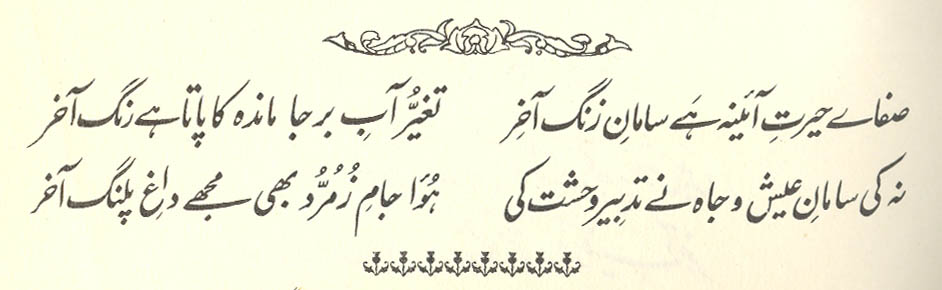 صفاے حیرتِ آئینہ ہَے سامانِ زنگ آخِر تغیُّر آبِ بر جا ماندہ کا پاتا ہے رنگ آخر
نہ کی سامانِ عیش و جاہ نے تدبیر وحشت کی ہُوَا جامِ زُمُرُّد بھی مجھے داغِ پلنگ آخر